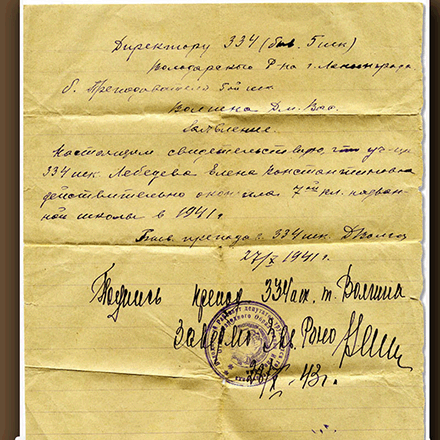 Директору 334 (быв. 5 шк)
Володарского р-на г. Ленинграда
б. Преподавателя 5ой шк.
Дм. Вас.
Заявление.
Настоящим свидетельствую, что уч-ца
334 шк. Лебедева Елена Константиновна
действительно окончила 7ой кл. назван-
ной школы в 1941 г
Быв. препод. 334 шк.
27/X 1941 г.
Подпись препод 334 шк. т. Волгина
43 г.